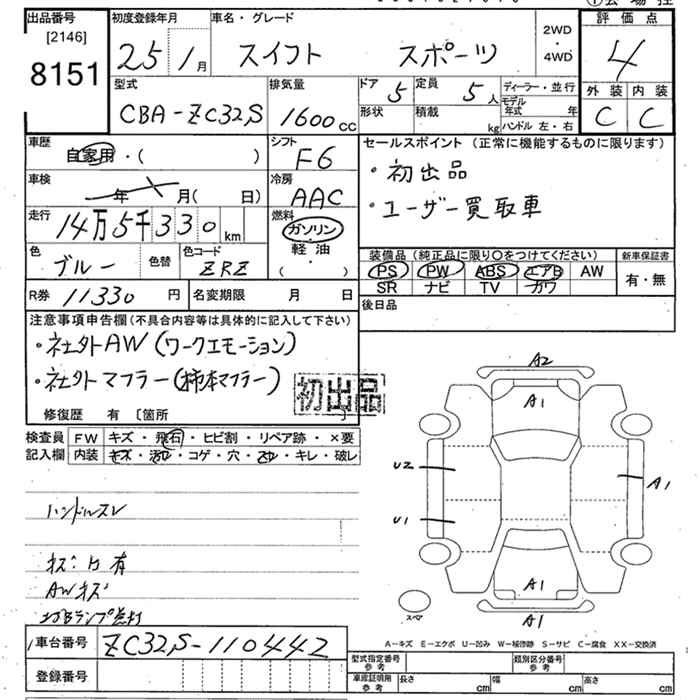 出品番号 初度登録年月 車名・グレード 評価点
[2146] 2WD
8151 25 1月 スイフト スポーツ ・ 4
4WD
型式 排気量 ドア 5 定員 5人 ディーラー・並行 外装 内装
CBA-ZC32S 1600cc 形状 積載 kg モデル年式 年 C C
ハンドル 左・右
車歴 シフト セールスポイント (正常に機能するものに限ります)
自家用・( ) F6 ・初出品
車検 冷房
年 月( 日) AAC ・ユーザー買取車
走行 燃料
14万5千330km ガソリン・
色 色替 色コード 軽油 装備品(純正品に限り○をつけてください) 新車保証書
ブルー ZRZ ・( ) PS PW ABS エアB AW 有・無
SR ナビ TV カワ
R券 11330円 名変期限 月 日 後日品
注意事項申告欄(不具合内容等は具体的に記入して下さい)
・社外AW(ワークエモーション)
・社外マフラー(柿本マフラー) 初出品
修復歴 有 〔箇所
検査員 FW キズ・飛石・ヒビ割・リペア跡・×要
記入欄 内装 キズ・汚れ・コゲ・穴・スレ・キレ・破レ
A2
A1
U2 A1
U1
A1
A1
スペア
ハンドルスレ
キズ凹有
AWキズ
A-キズ E-エクボ U-凹み W-補修跡 S-サビ C-腐食 XX-交換済
車台番号 ZC32S-110442
登録番号
型式指定番号 参考 類別区分番号 参考
車庫証明用 参考 長さ cm 幅 cm 高さ cm